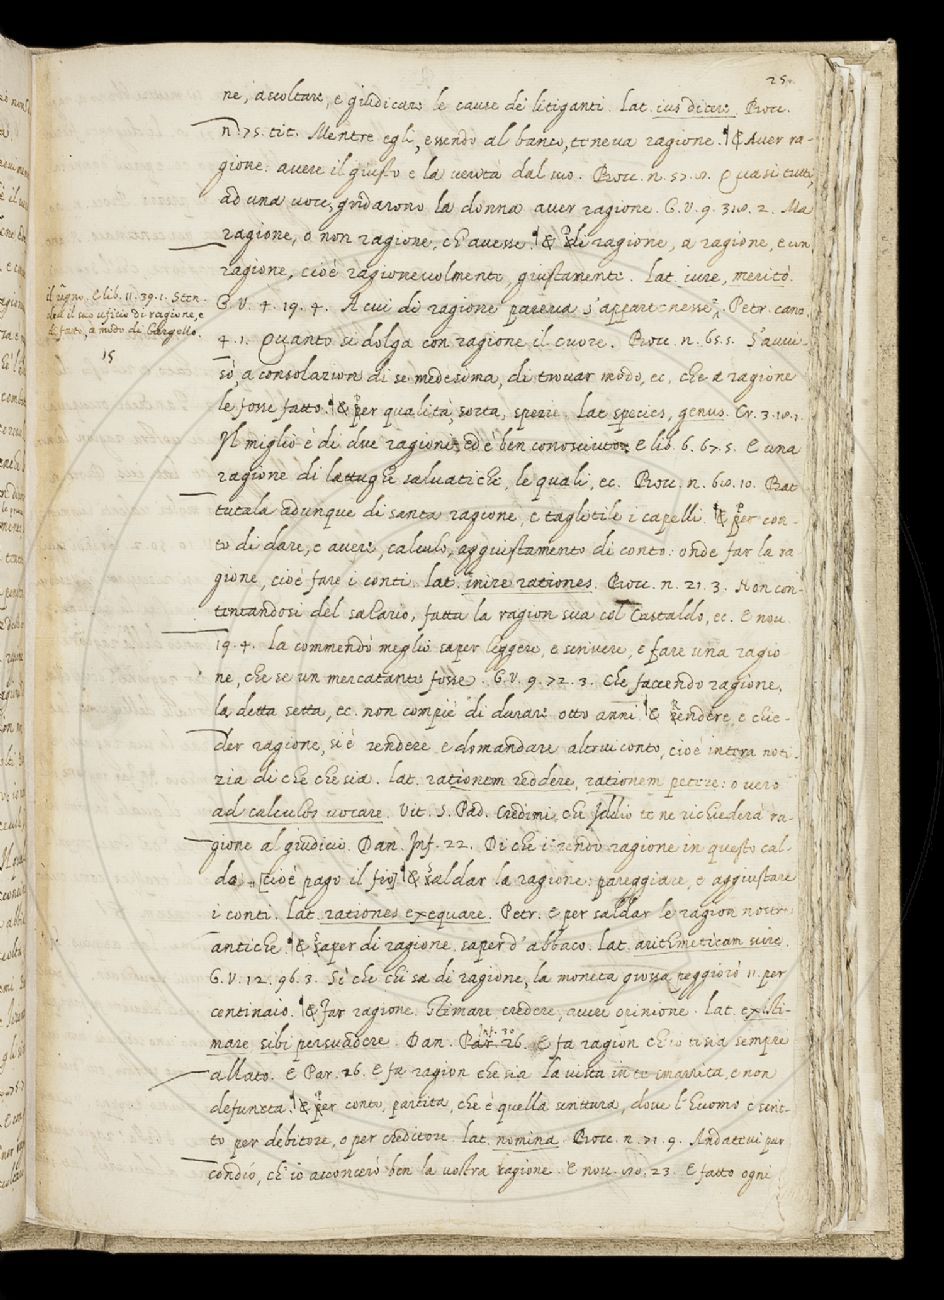 25.
ne, ascoltare, e giudicare le cause de i litiganti. Lat. ius dicere. Bocc.
n. 75. tit. Mentre egli, essendo al banco, teneva ragione. ¶ & Aver ra-
gione: avere il giusto e la verità dal suo. Bocc. n. 57. 8. Quasi tutti,
ad una voce, gridarono la donna aver ragione. G. V. 9. 318. 2. Ma
ragione, o non ragione, ch'avesse. ¶ & di ragione, a ragione, e con
ragione, cioè ragionevolmente, giustamente. Lat. iure, meritò.
G. V. 4. 19. 4. A cui di ragione pareva s'appartenesse. Petr. canz.
il regno. E lib. 11. 39. 1. Sten-
dea il suo uficio di ragione, e
di fatto, a modo di Bargello.
15
4. 1. Quanto si dolga con ragione il cuore. Bocc. n. 65. 5. S'avvi-
sò, a consolazion di se medesima, di trovar modo, ec. che a ragione
le fosse fatto. ¶ & per qualità, sorta, spezie. Lat. species, genus. Cr. 3. 18. 1.
Il miglio è di due ragioni, ed è ben conosciuto. E lib. 6. 67. 5. E una
ragione di lattughe salvatiche, le quali, ec. Bocc. n. 68. 10. Bat-
tutala adunque di santa ragione, e tagliatile i capelli. ¶ & per con-
to di dare, e avere, calculo, aggiustamento di conto: onde far la ra-
gione, cioè fare i conti. Lat. inire rationes. Bocc. n. 21. 3. Non con-
tentandosi del salario, fatta la ragion sua col Castaldo, ec. E nov.
19. 4. La commendò meglio saper leggere, e scrivere, e fare una ragio-
ne, che se un mercatante fosse. G. V. 9. 72. 3. Che faccendo ragione,
la detta setta, ec. non compiè di durare otto anni. ¶ & rendere, e chie-
der ragione, si è rendere e domandare altrui conto, cioè intera noti-
zia di che che sia. Lat. rationem reddere, rationem petere: o vero
ad calculos vocare. Vit. S. Pad. Credimi, che Iddio te ne richiederà ra-
gione al giudicio. Dan. Inf. 22. Di ch'i' rendo ragione in questo cal-
do. [cioè pago il fio] ¶ & saldar la ragione: pareggiare, e aggiustare
i conti. Lat. rationes exequare. Petr. E per saldar le ragion nostre
antiche. ¶ & saper di ragione. saper d'abbaco. Lat. arithmeticam scire.
G. V. 12. 96. 3. Sì che chi sa di ragione, la moneta grossa peggiorò 11. per
centinaio. ¶ & Far ragione. Stimare, credere, avere opinione. Lat. existi-
mare sibi persuadere. Dan. Par. 26. Inf. 30. E fa ragion ch'io ti sia sempre
allato. E Par. 26. E fa ragion che sia La vista in te smarrita, e non
defuncta. ¶ & per conto, partita, che è quella scrittura, dove l'huomo è scrit-
to per debitore, o per creditore. Lat. nomina. Bocc. n. 71. 9. Andattivi pur
con dio, ch'io acconcerò ben la vostra ragione. E nov. 80. 23. E fatto ogni